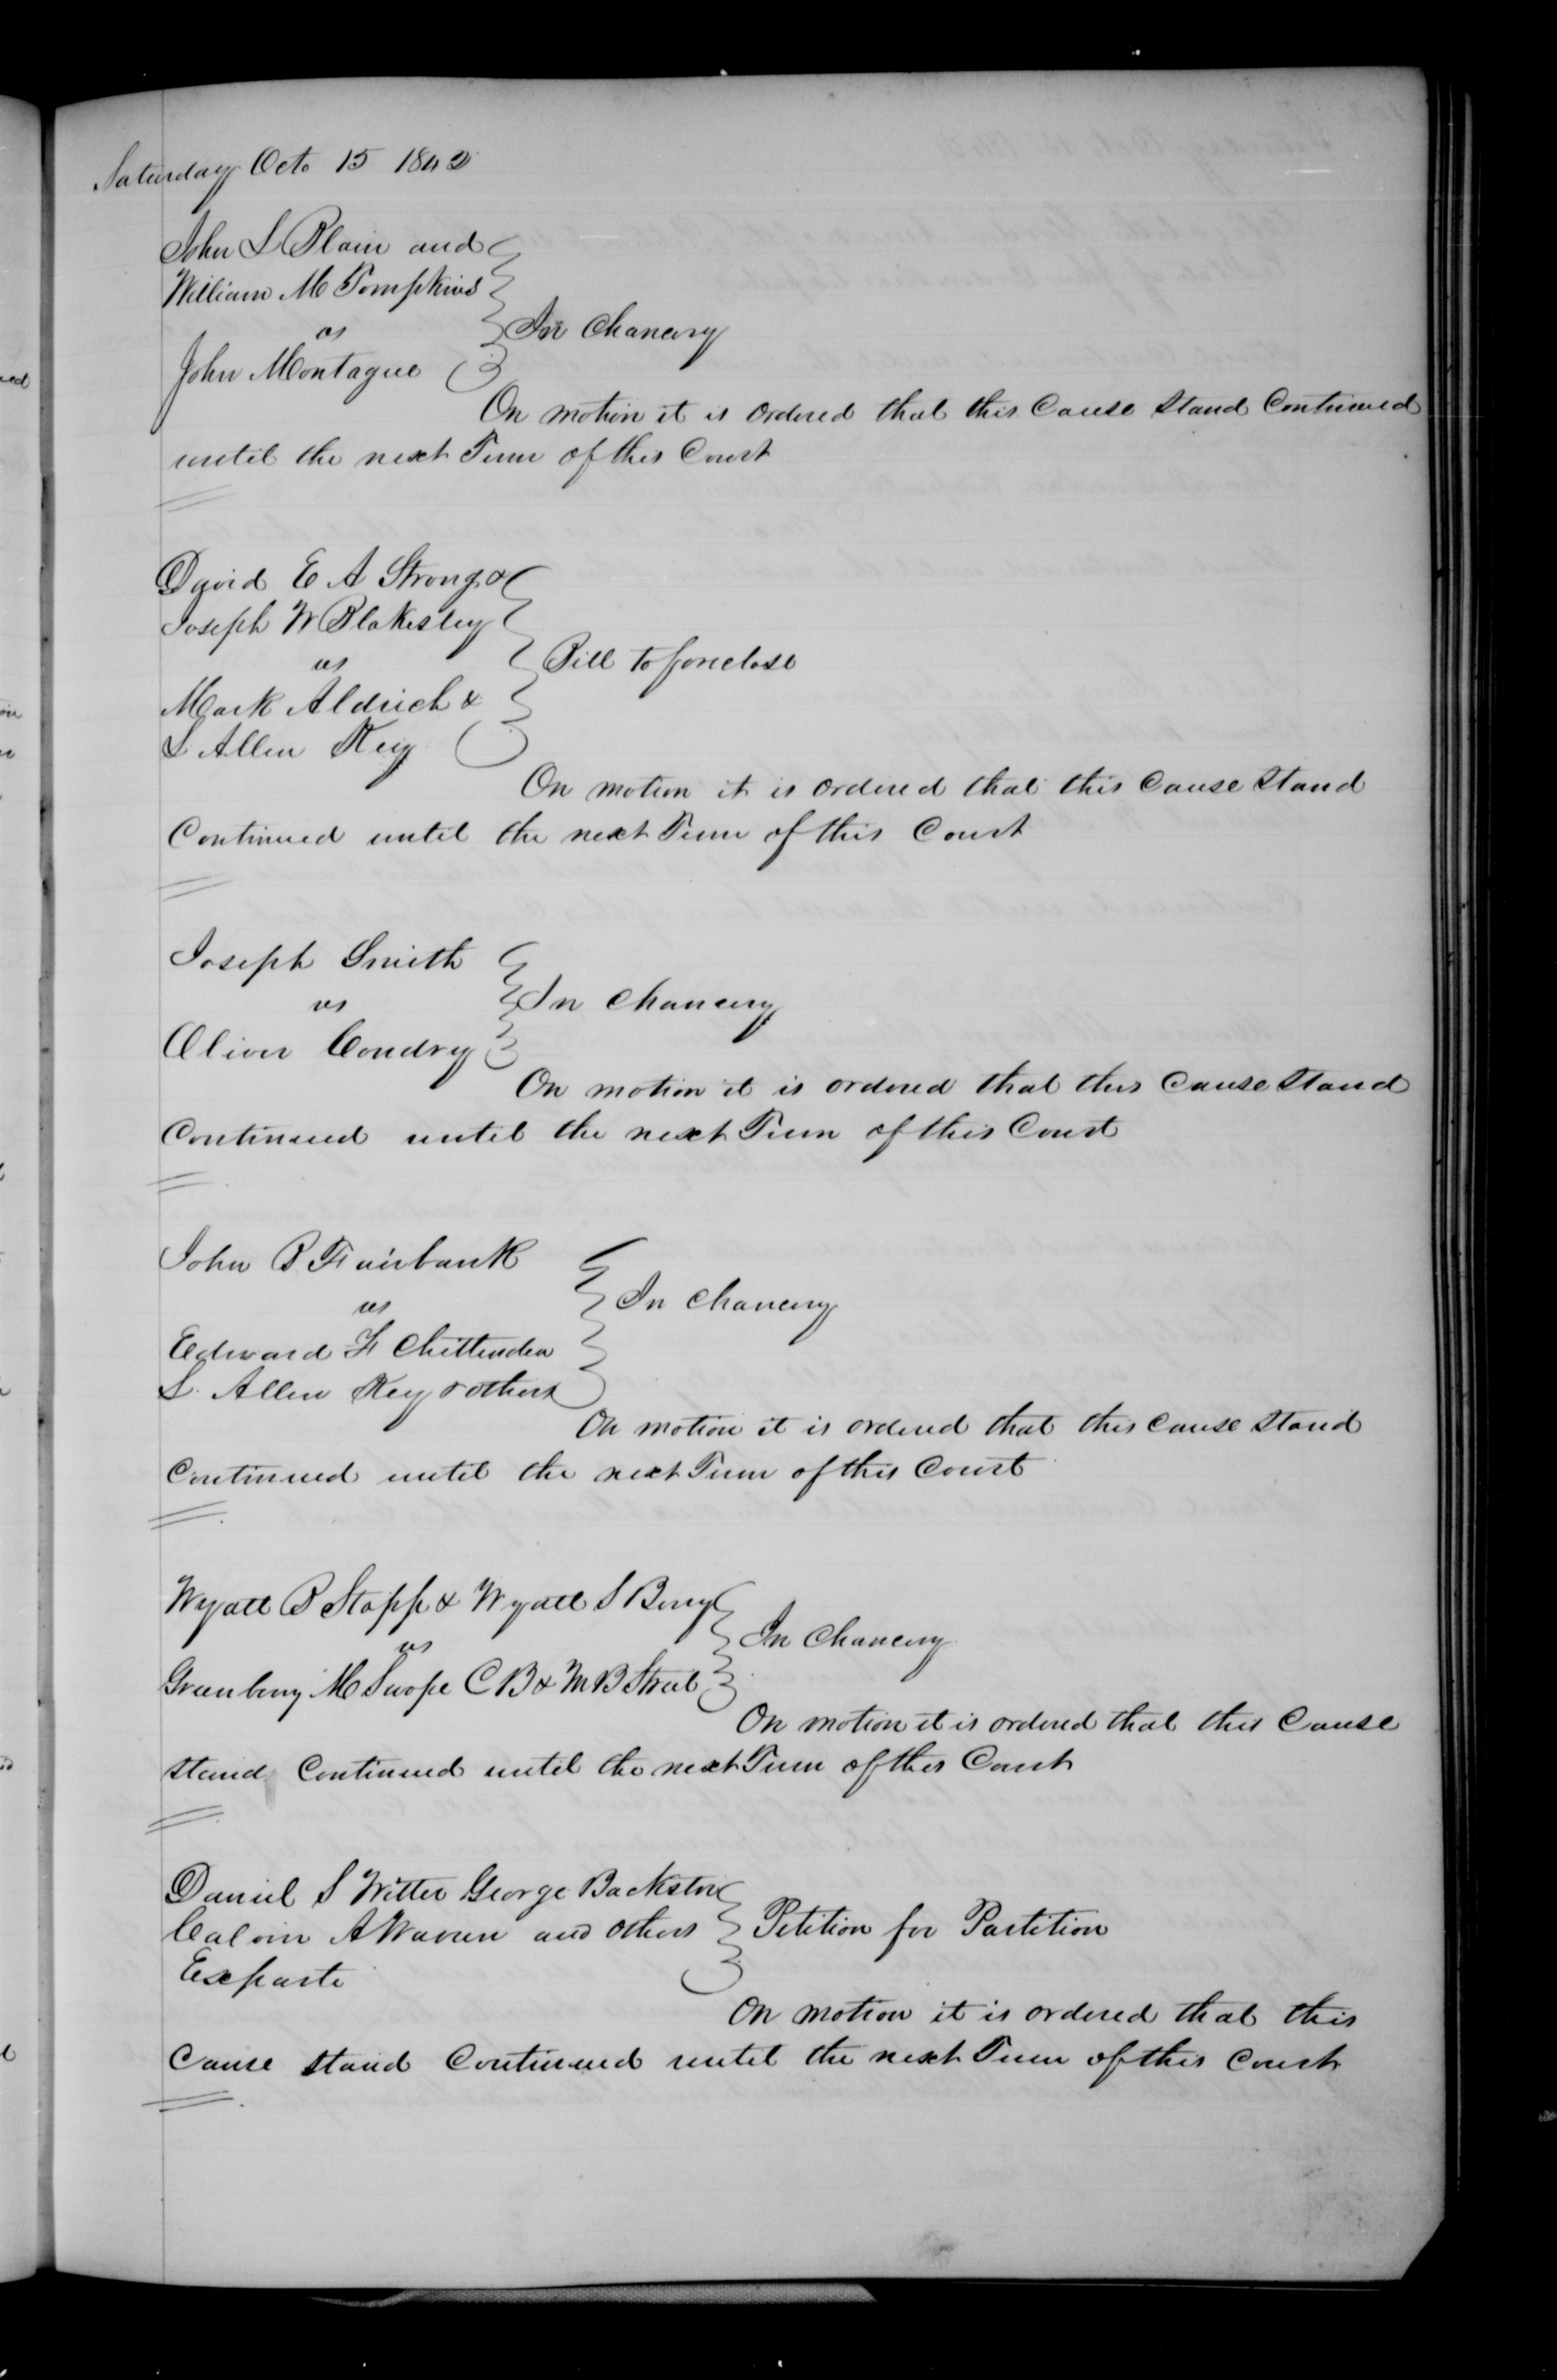 Saturday Octo 15 1842
John L Blain and
William M Tompkins
vs
In Chancery
John Montague
On motion it is ordered that this Cause stand Continued
until the next Term of this Court
David E A Strong &
Joseph W Blakesley
vs
Bill to foreclose
Mark Aldrich &
L Allen Key
On motion it is ordered that this Cause stand
Continued until the next Term of this Court
Joseph Smith
vs
In Chancery
Oliver Coudry
On motion it is ordered that this Cause stand
Continued until the next Term of this Court
John B Fairbank
vs
In Chancery
Edward F Chittenden
L. Allen Key & others
On motion it is ordered that this cause stand
Continued until the next Term of this Court
Wyatt B Stapp & Wyatt S Berry
vs
In Chancery
Greenberry M Swope C B & M B Street
On motion it is ordered that this Cause
stand Continued until the next Term of this Court
Daniel S Witter George Backston
Calvin A Warren and others
Petition for Partition
Exparte
On motion it is ordered that this
Cause stand Continued until the next Term of this Court